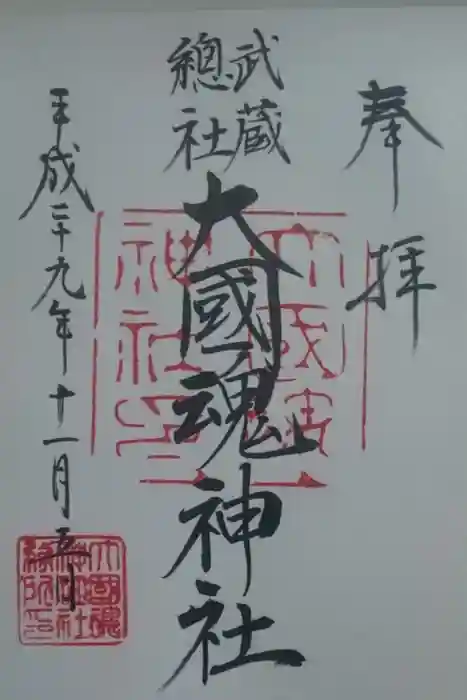 奉拝
武蔵
總社
大國魂神社
平成二十九年十一月五日